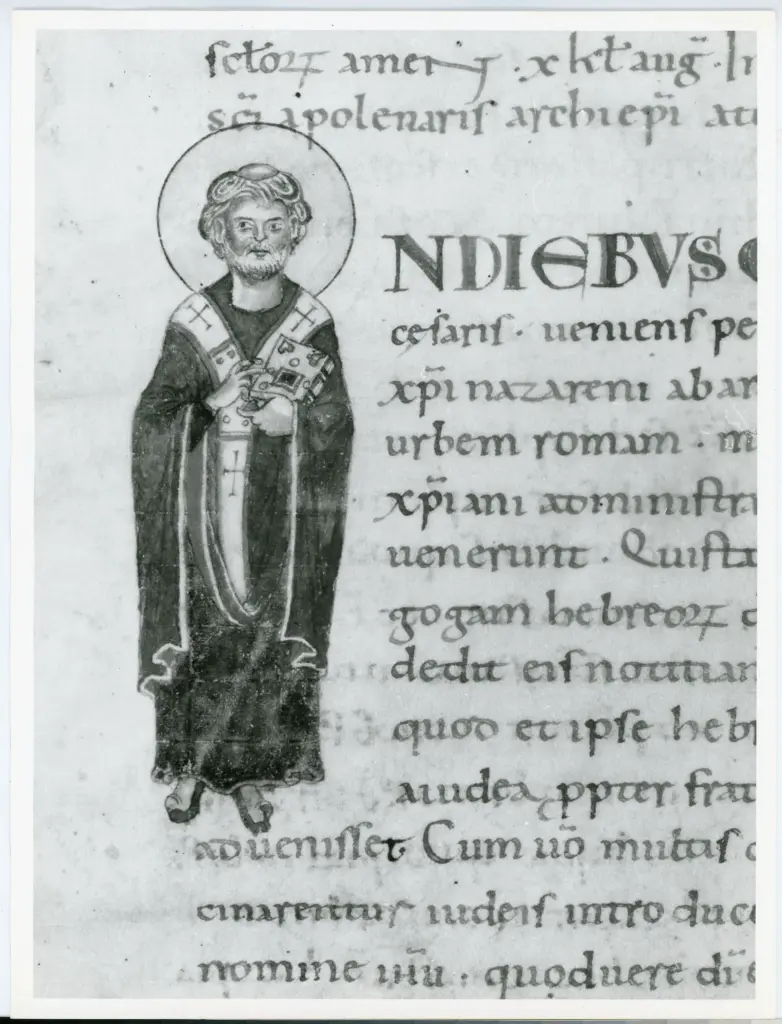 sc̄toꝝ amen · x kl̄ aug̃ · In
sc̄i apolenaris archiep̄i
NDIEBVS
cesaris · ueniens pe
xp̄i nazareni ab
urbem romam · m
xp̄iani administra
uenerunt · Quista
gogam hebreoꝝ
dedit eis notitiam
quod et ipse heb
aiudea ꝓpter frat
aduenisset Cum uō multis
cinarentur iudeis intro duc
nomine iħu · quoduere di